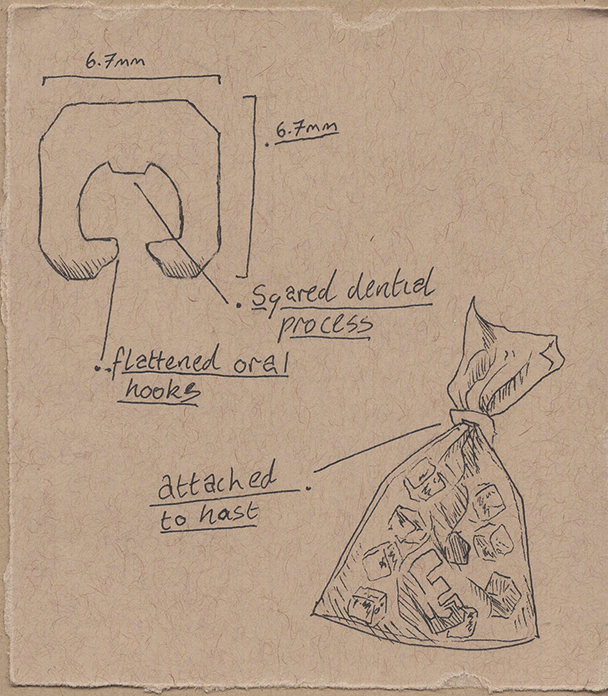 6.7mm
6.7mm
Sqared dential
process
flattened oral
hooks
attached
to host